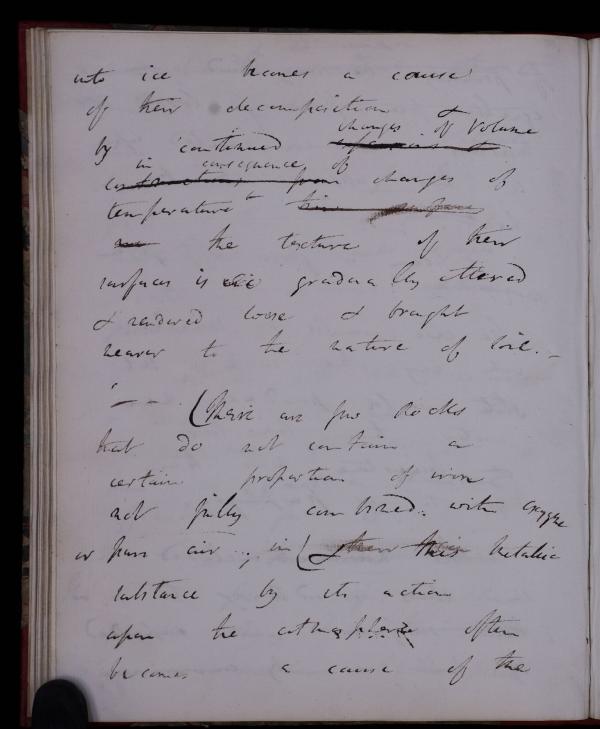 into ice becomes a cause
of their decomposition
changes of Volume
by continued expansions &
in consequence of
contractions from changes of
temperature
the texture of their
surfaces is gradually altered
& rendered loose & brought
nearer to the nature of soil. _
(There are few Rocks
that do not contain a
certain proportion of iron
not fully combined with oxygene
or pure air in ( this Metallic
substance by its action
upon the atmosphere often
becomes a cause of the